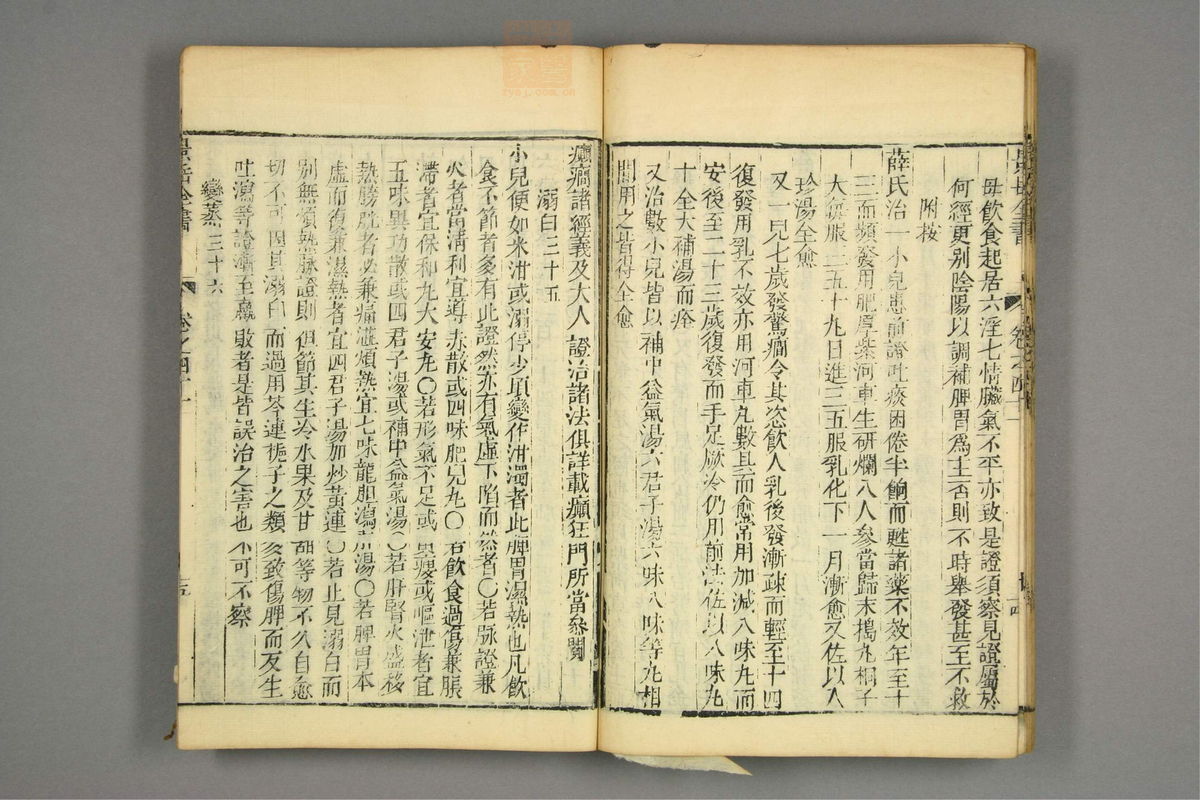 毋飲食起居六淫七情臟氣不平亦致是證須察見證屬於
何經更别陰陽以調補脾胃爲主否則不時舉發甚至不救
附按
薛氏治一小兒患前證吐痰困倦半餉而甦諸藥不效年至十
三而頻發用肥厚紫河車生研爛入人參當歸末搗丸桐子
大每服三五十丸日進三五服乳化下一月漸愈又佐以八
珍湯全愈
又一兒七歲發驚癎令其恣飲人乳後發漸疎而輕至十四
復發用乳不效亦用河車丸數具而愈常用加減八味丸而
安後至二十三歲復發而手足厥冷仍用前法佐以八味丸
十全大補湯而痊
又治數小兒皆以補中益氣湯六君子湯六味八味等丸相
間用之皆得全愈
癲癎諸經義及大人證治諸法俱詳載癲狂門所當叅閱
溺白三十五
小兒便如米泔或溺停少頃變作泔濁者此脾胃濕熱也凡飲
食不節者多有此證然亦有氣虚下陷而然者〇若脉證兼
火者當淸利宜導赤散或四味肥兒丸〇若飲食過傷兼脹
滯者宜保和丸大安丸〇若形氣不足或黃瘦或嘔泄者宜
五味異功散或四君子湯或補中益氣湯〇若肝腎火盛移
熱膀胱者必兼痛澁煩熱宜七味龍胆瀉肝湯〇若脾胃本
虚而復兼濕熱者宜四君子湯加炒黃連〇若止見溺白而
别無煩熱脉證則但節其生冷水果及甘甜等物不久自愈
切不可因其溺白而過用芩連梔子之類多致傷脾而反生
吐瀉等證漸至羸敗者是皆誤治之害也不可不察
變蒸三十六
景岳全書
卷之四十一
十五